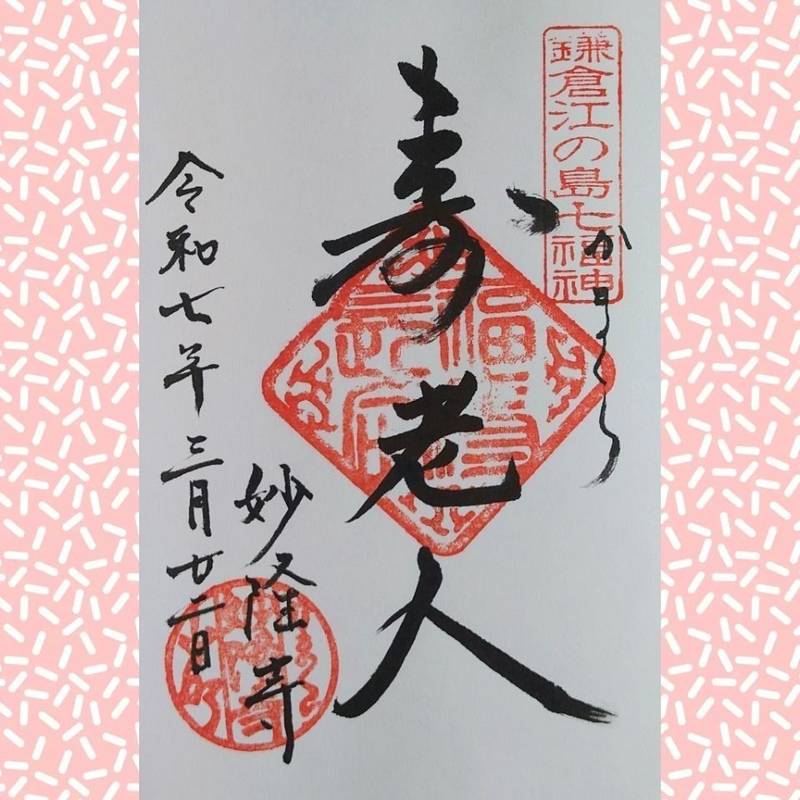 鎌倉江の島七福神
かまくら
寿老人
妙隆寺
令和七年三月廿二日